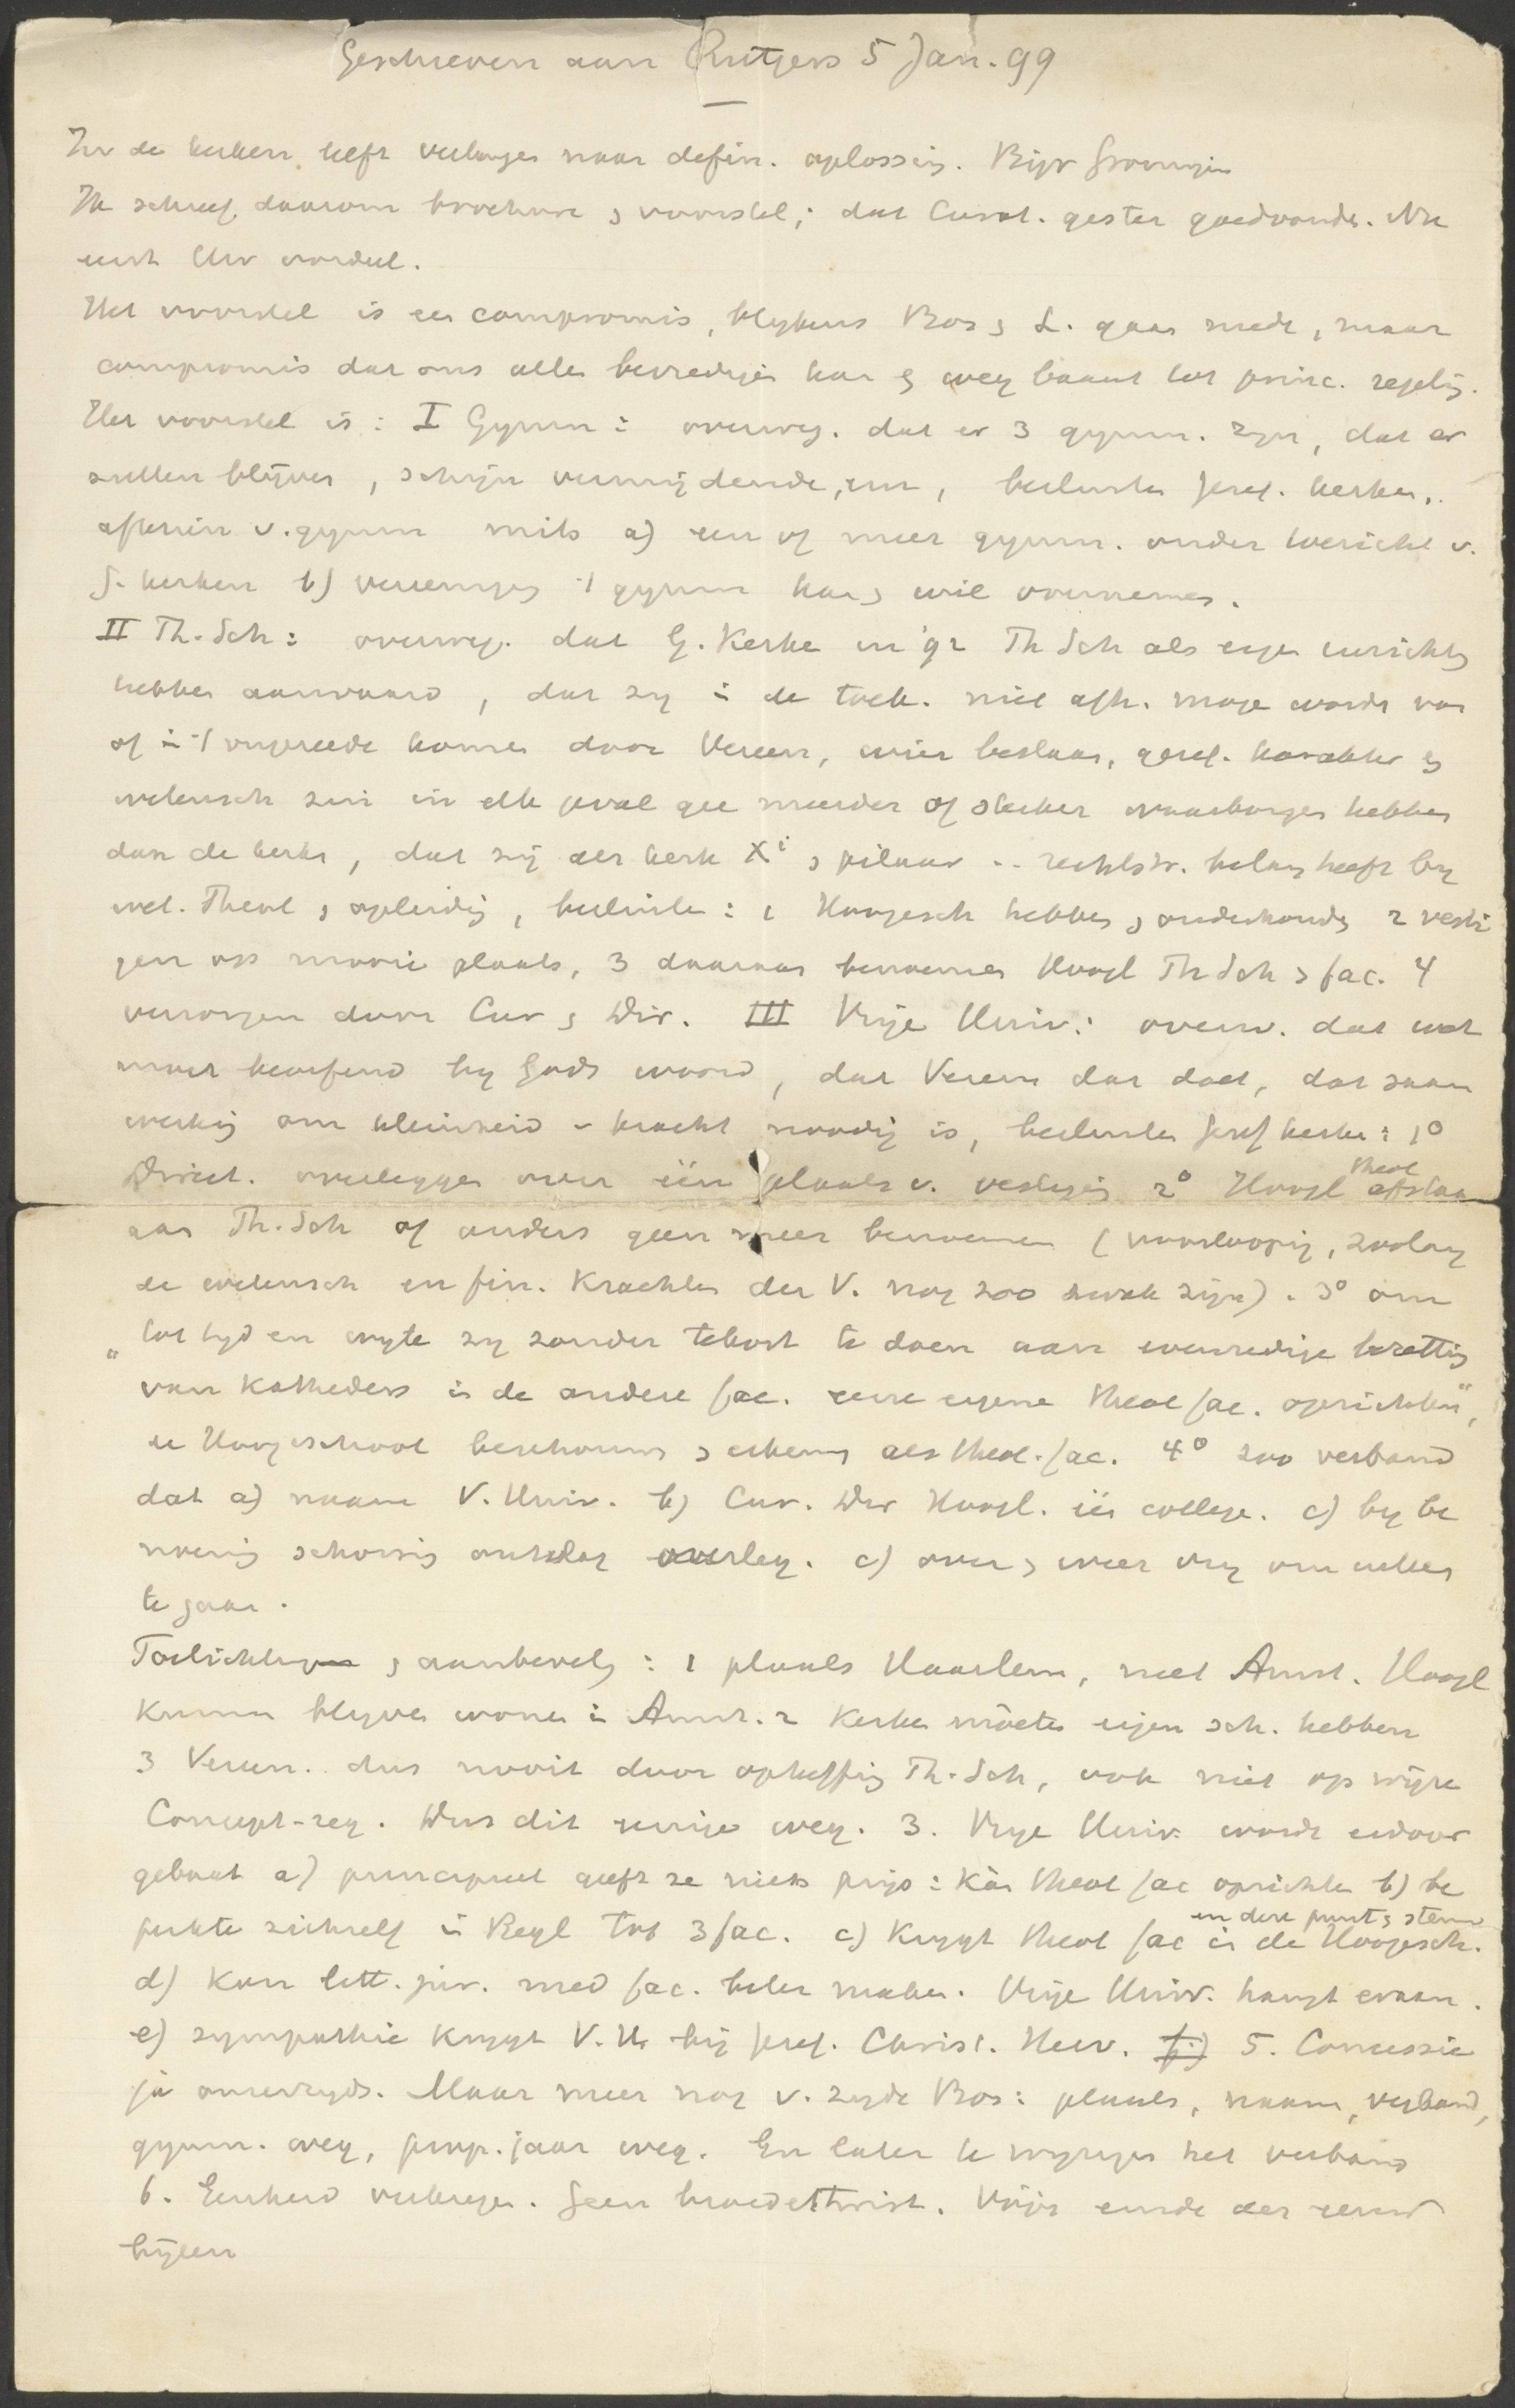 Geschreven aan Rutgers 5 Jan. 99
In de kerken leeft verlangen naar defin. oplossing. Bijv Groningen
Ik schreef daarom brochure & voorstel; dat Curat. gister goedvonde. Nu
eerst Uw oordeel.
Het voorstel is een compromis, blykens Bos & L. gaan mede, maar
compromis dat ons allen bevredigen kan & weg baant tot princ. regelig.
Het voorstel is: I Gymn: overweg. dat er 3 gymn. zyn, dat er
zullen blijven, schijn vermijdende, enz, besluiten geref. kerken,
afkrien v. gymn mits a) een of meer gymn. onder toezicht v.
G. kerken b) vereenigg 't gymn kan & wil overnemen.
II Th. Sch: overweg. dat G. Kerke in '92 Th Sch als eigen inrichtg
hebben aanvaard, dat zy in de toek. niet afh. moge worde van
of in 't ongereede komen door Vereen, wier bestaan, geref. karakter &
wetensch zin in elk geval gee meerder of sterker waarborgen hebben
dan de kerke, dat zij als kerk Xi & pilaar .. rechtstr. belang heeft by
wet. Theol & opleidig, besluite: 1 Hoogesch hebben & onderhoude 2 vesti
gen op mooie plaats, 3 daaraan benoemen Hoogl Th Sch & fac. 4
verzorgen door Cur & Dir. III Vrije Univ: overw. dat wet
moet beoefend by Gods woord, dat Vereen dat doet, dat saam
werkig om kleinheid v kracht noodig is, besluiten Geref kerke: 1o
Direct. overleggen over één plaats v. vestigin 2o Hoogl theol afstaan
aan Th. Sch of anders geen meer benoemen (voorloopig, zoolang
de wetensch en fin. Krachten der V. nog zoo zwak zijn). 3o om
"tot tyd en wyle zy zonder tekort te doen aan evenredige bezettig
van Katheders in de andere fac. eene eigene theol fac. oprichten",
de Hoogeschool beschouwe & erkenne als theol. fac. 4o zoo verband
dat a) naam V. Univ. b) Cur. Dir Hoogl. één college. c) by be
noemig schorsig ontslag overleg. c) over & weer vry om colleg
te gaan.
Toelichting & aanbevelg: 1 plaats Haarlem, niet Amst. Hoogl
kunnen blyven wonen in Amst. 2 Kerke mòeten eigen sch. hebben
3 Vereen. dus nooit door opheffig Th. Sch, ook niet op wijze
Concept-reg. Dus dit eenige weg. 3. Vrye Univ. wordt erdoor
gebaat a) principieel geeft ze niets prijs: kàn theol fac oprichten b) be
perkte zichzelf in Regl tot 3 fac. c) Krygt theol fac in de Hoogesch.
en deze punt & stem
d) Kan litt. jur. med fac. beter maken. Vrije Univ. hangt eraan.
e) sympathie krygt V. U. bij geref. Christ. Herv. f) 5. Concessie
ja onzerzyds. Maar meer nog v. zyde Bos: plaats, naam, verband,
gymn. weg, prop. jaar weg. En later te wyzigen het verband
6. Eenheid verkregen. Geen broedertwist. Vóór einde der eeuw
bijeen